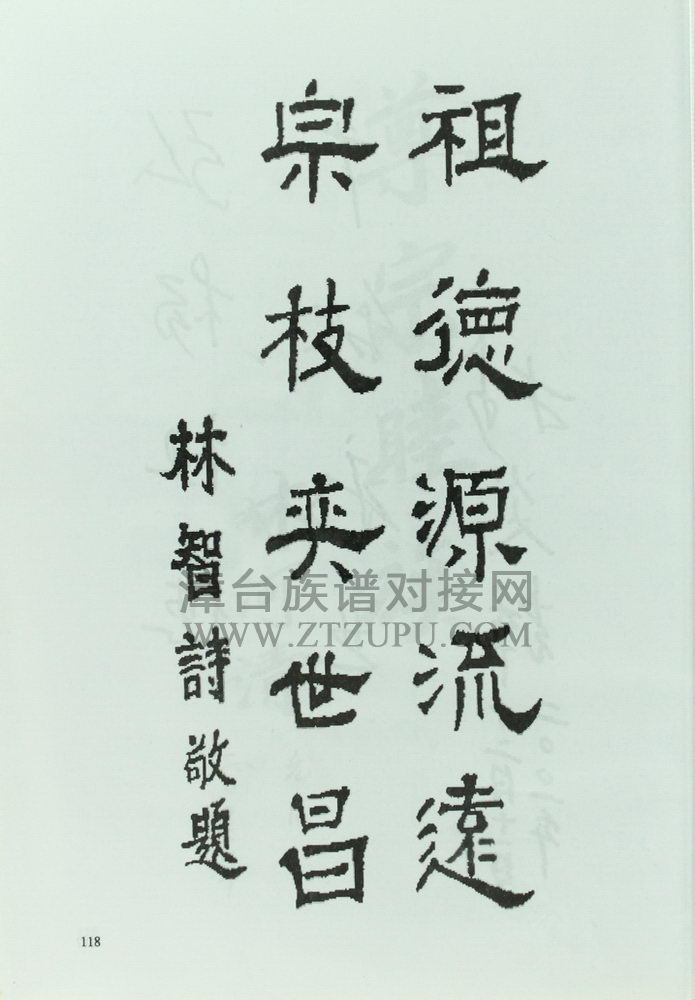 祖德源流遠
宗枝奕世昌
林智詩敬題
漳台族谱对接网
WWW.ZTZUPU.COM
118